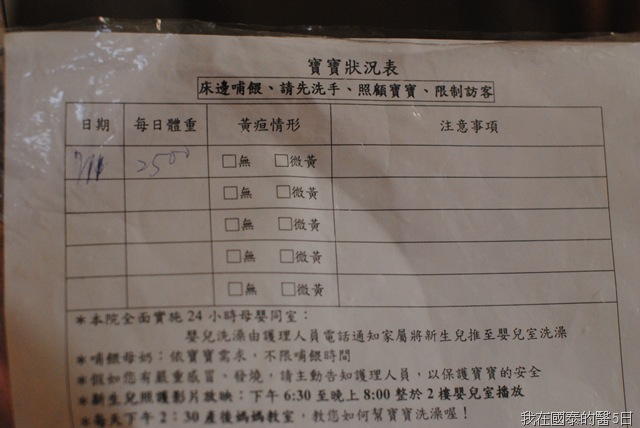 寶寶狀況表
床邊哺餵、請先洗手、照顧寶寶、限制訪客
日期 每日體重 黃疸情形 注意事項
2500 □無 □微黃
□無 □微黃
□無 □微黃
□無 □微黃
□無 □微黃
*本院全面實施24小時母嬰同室：
嬰兒洗澡由護理人員電話通知家屬將新生兒推至嬰兒室洗澡
*哺餵母奶：依寶寶需求，不限哺餵時間
*假如您有嚴重感冒、發燒，請主動告知護理人員，以保護寶寶的安全
*新生兒照護影片放映：下午6:30至晚上8:00整於2樓嬰兒室播放
*每天下午2：30產後媽媽教室，教您如何幫寶寶洗澡喔！
我在國泰的醫5日